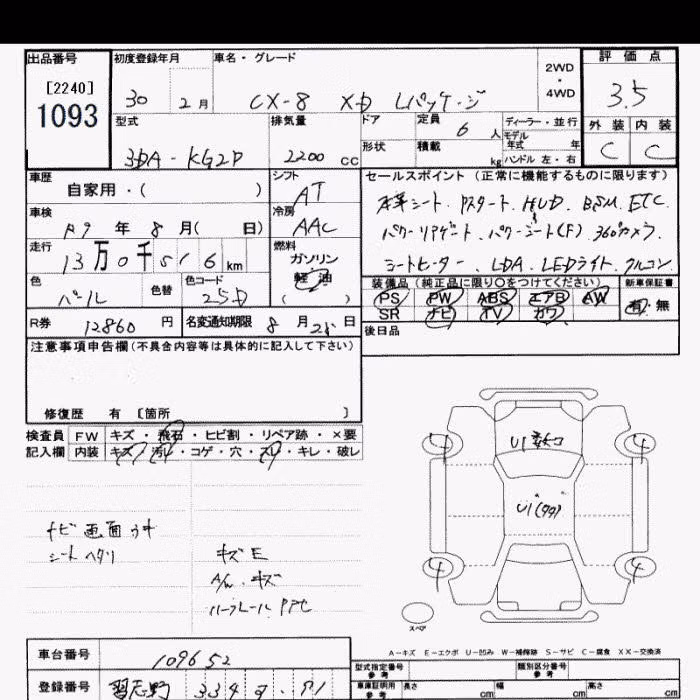 出品番号 初度登録年月 車名・グレード 2WD・4WD 評価点
[2240]
1093
30 2月 CX-8 XD Lパッケージ 3.5
型式 排気量 ドア 定員 6人 ディーラー・並行 外装 内装
3DA-KG2P 2200cc 形状 積載 kg モデル年式 年 C C
ハンドル 左・右
車歴 自家用・( ) シフト AT セールスポイント(正常に機能するものに限ります)
車検 R9年8月( 日) 冷房 AAC 本革シート. Pスタート. HUD. BSM. ETC
パワーリアゲート. パワーシート(F) 360°カメラ.
走行 13万0千516km 燃料 ガソリン 軽油 ( ) シートヒーター. LDA. LEDライト. クルコン
色 パール 色替 色コード 25D 装備品(純正品に限り○をつけてください) 新車保証書
PS PW ABS エアB AW 有・無
SR ナビ TV カワ
R券 12860円 名変通知期限 8月28日 後日品
注意事項申告欄(不具合内容等は具体的に記入して下さい)
修復歴 有 [箇所 ]
検査員記入欄 FW キズ・飛石・ヒビ割・リペア跡・×要
内装 キズ・汚れ・コゲ・穴・スレ・キレ・破れ
ナビ画面ウキ
シートヘタリ
キズE
A/W. キズ
ハーフレール PPC
4 4
U1
U1
4 4
スペア
A-キズ E-エクボ U-凹み W-補修跡 S-サビ C-腐食 XX-交換済
車台番号 109652
型式指定番号 参考 類別区分番号 参考
登録番号 習志野 334
車庫証明用 参考 長さ cm 幅 cm 高さ cm